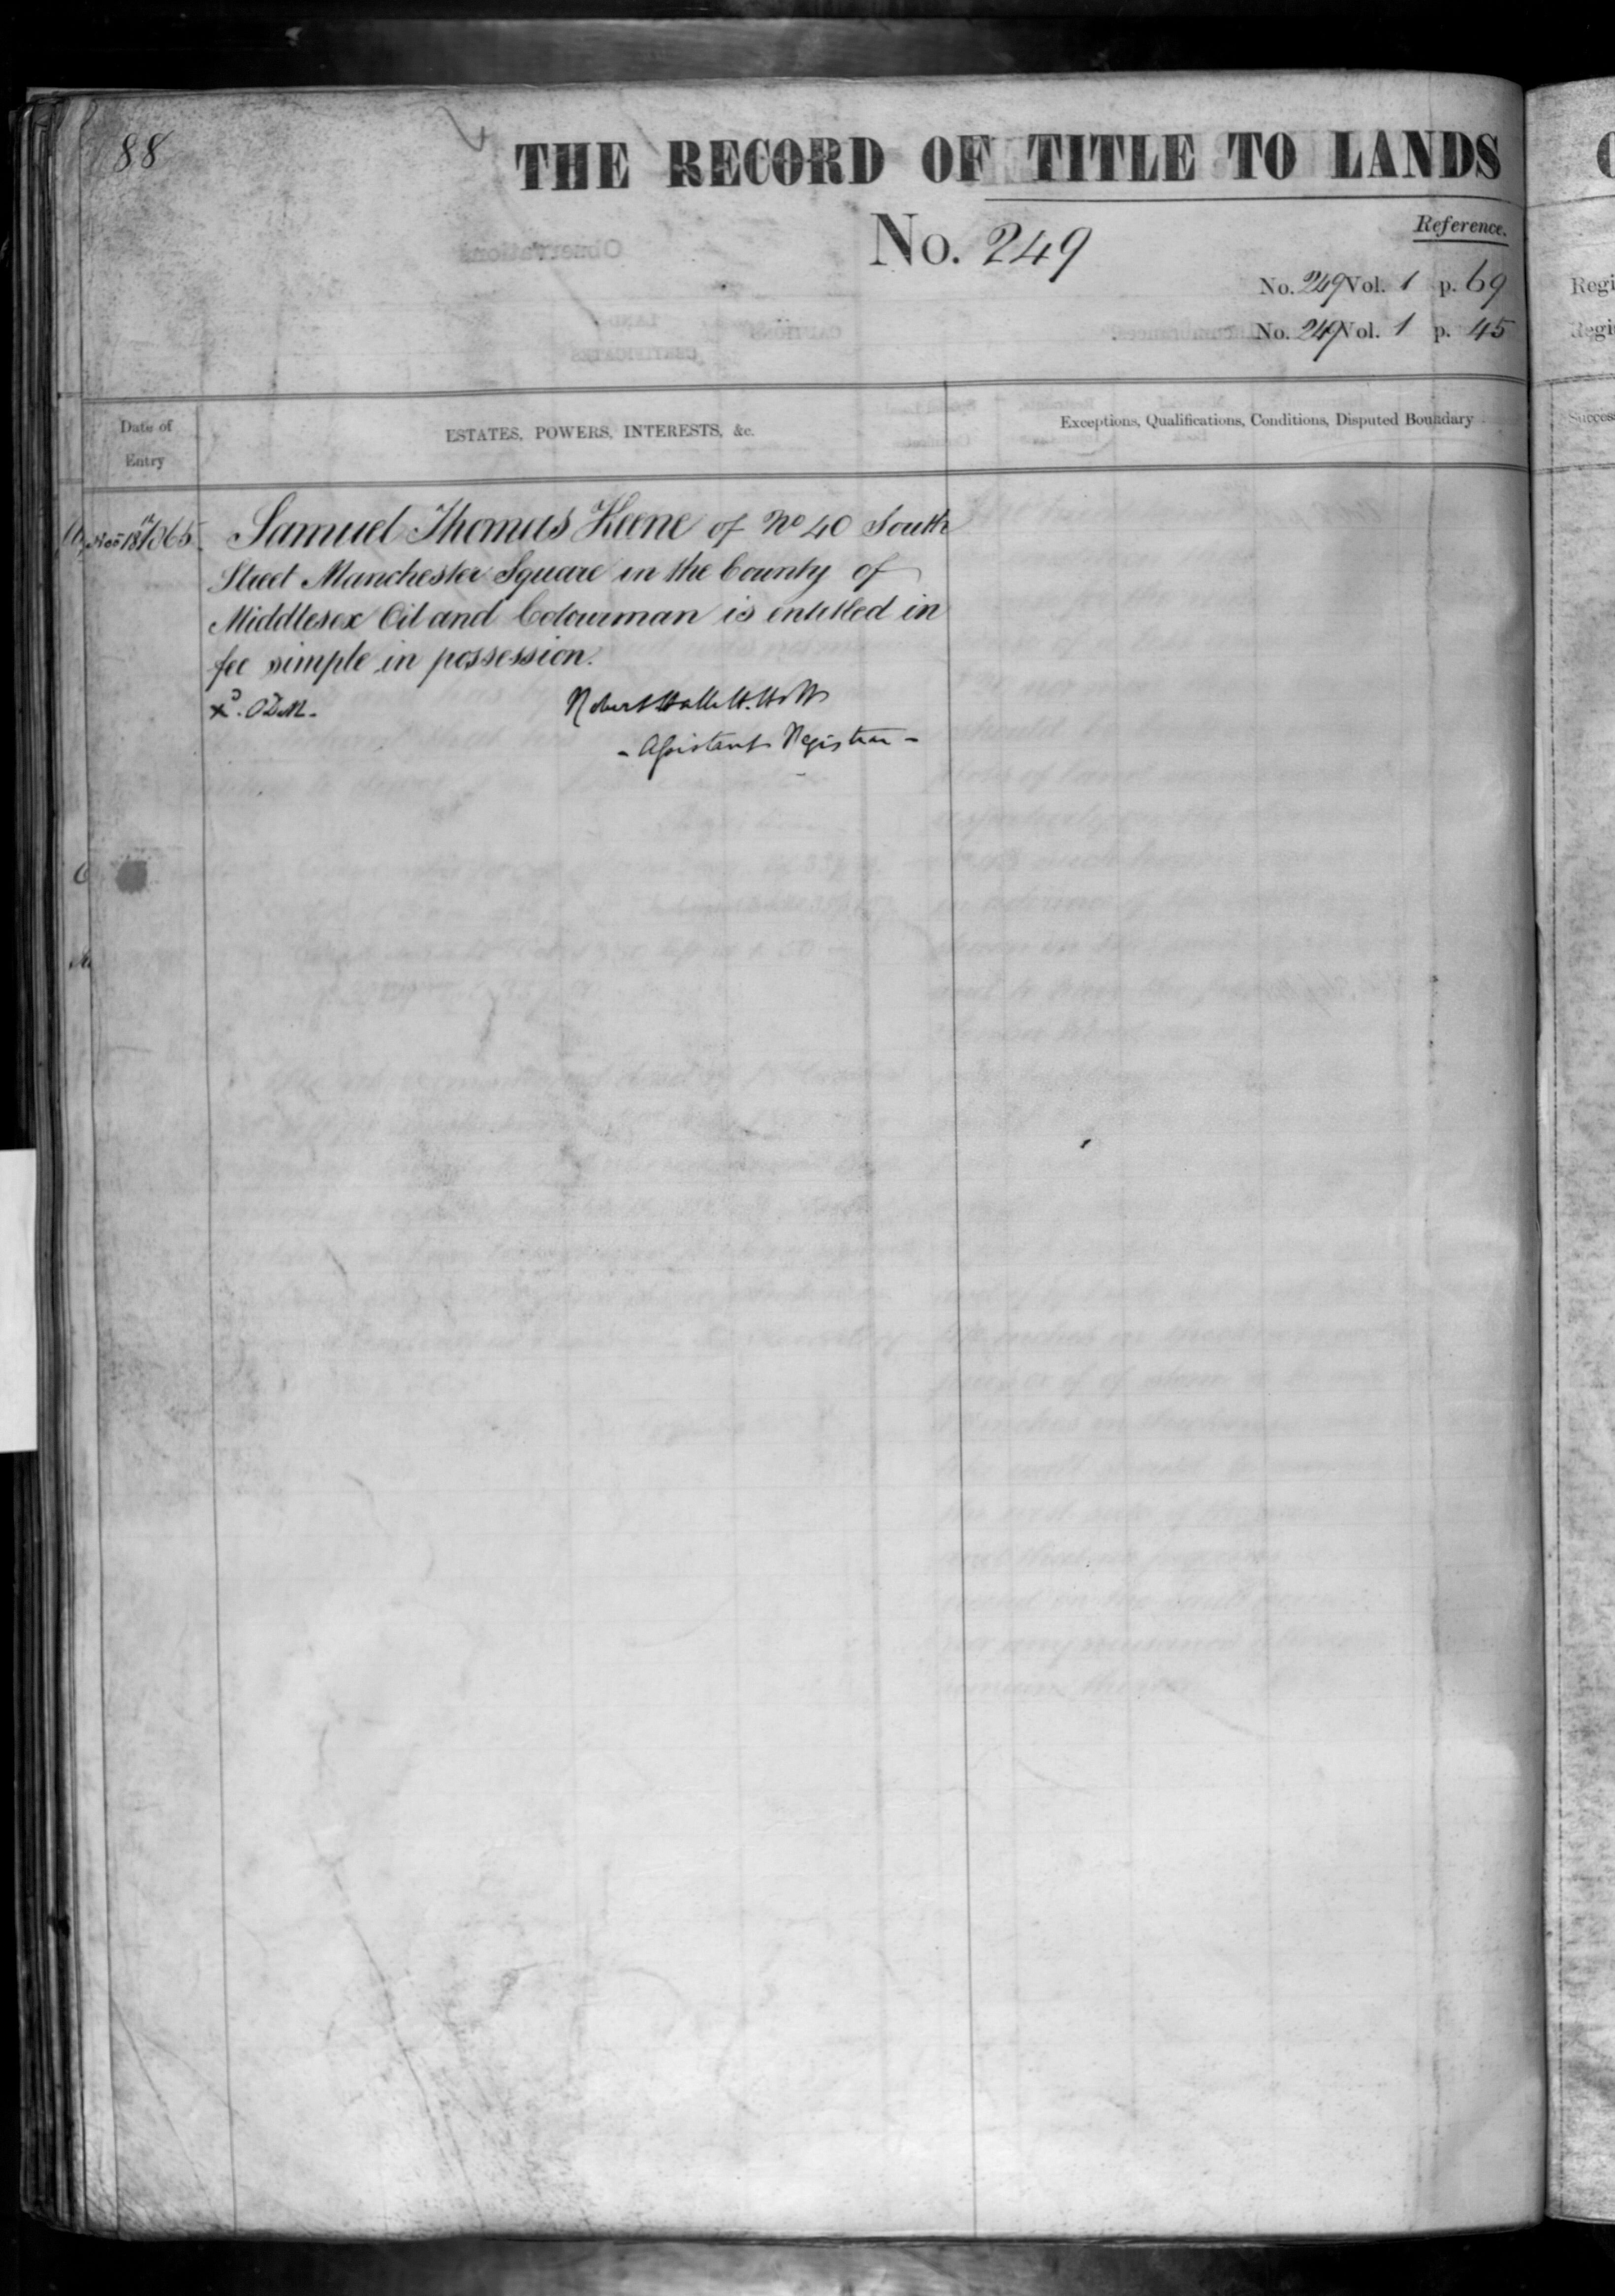 88
THE RECORD OF TITLE TO LANDS
No. 249
Reference.
No. 249 Vol. 1 p. 69
No. 249 Vol. 1 p. 45
Date of
Entry
ESTATES, POWERS, INTERESTS, &c.
Exceptions, Qualifications, Conditions, Disputed Boundary
1865. Samuel Thomas Keene of No 40 South
Street Manchester Square in the County of
Middlesex Oil and Colourman is entitled in
fee simple in possession.
Robert Hallett Holt
- Assistant Registrar -